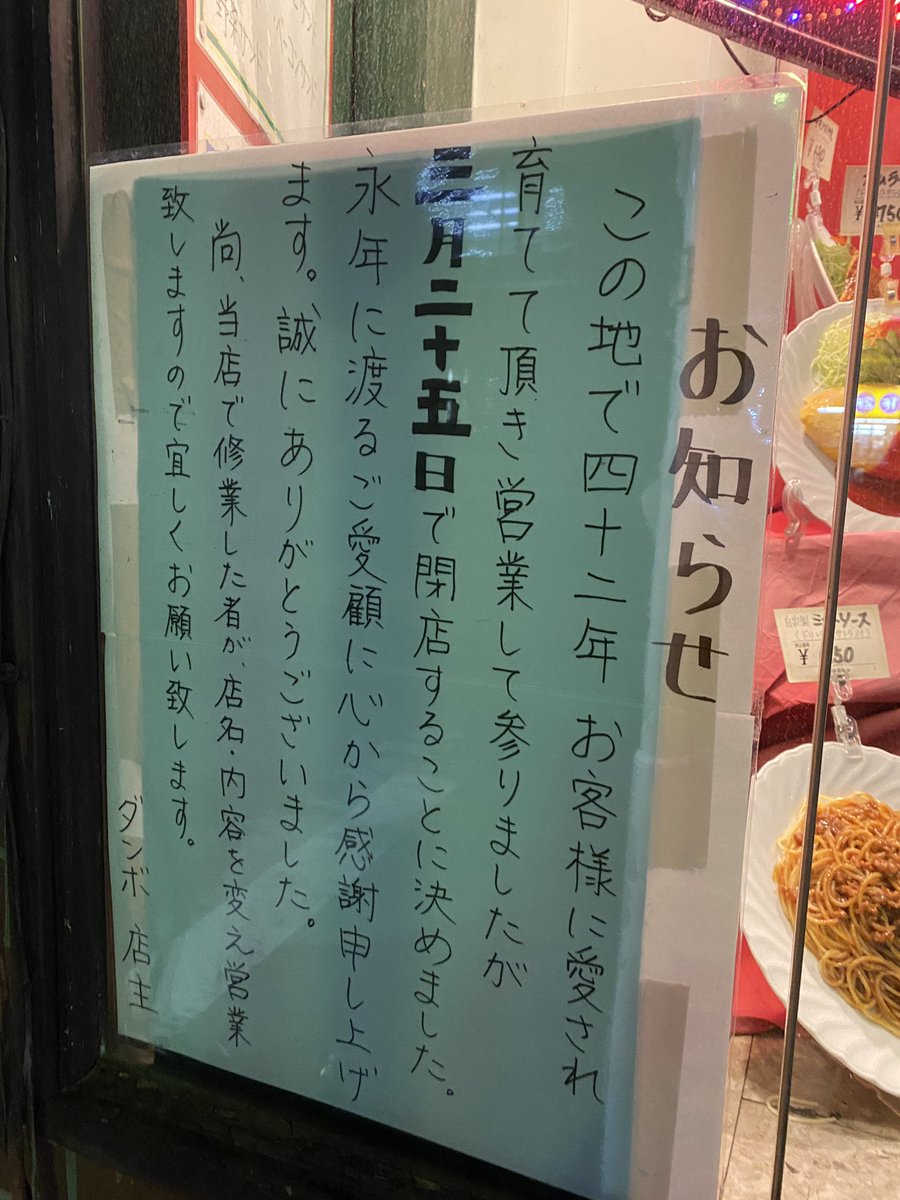 お知らせ
この地で四十二年 お客様に愛され
育てて頂き営業して参りましたが
三月二十五日で閉店することに決めました。
永年に渡るご愛顧に心から感謝申し上げ
ます。誠にありがとうございました。
尚、当店で修業した者が、店名・内容を変え営業
致しますので宜しくお願い致します。
ダンボ 店主
自家製 ミートソース